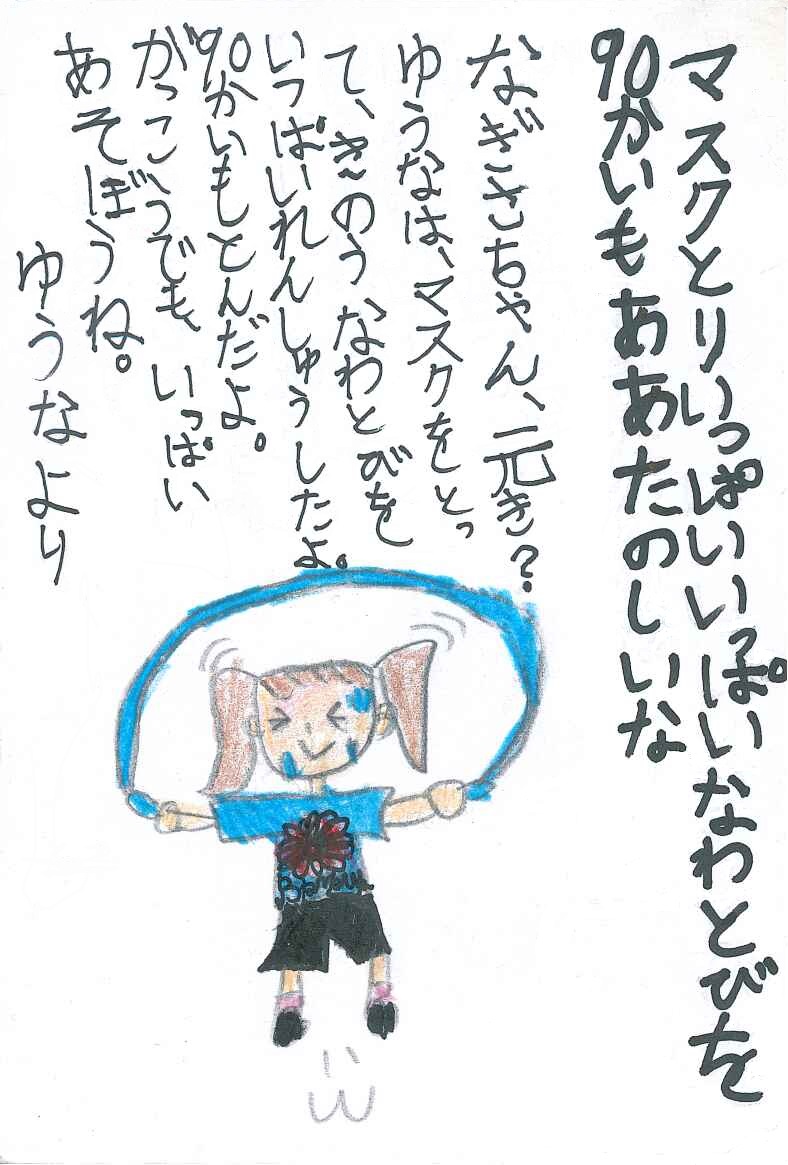 マスクとりいっぱいいっぱいなわとびを
90かいもああたのしいな
なぎさちゃん、元き？
ゆうなは、マスクをとっ
て、きのうなわとびを
いっぱいれんしゅうしたよ。
90かいもとんだよ。
がっこうでも、いっぱい
あそぼうね。
ゆうなより